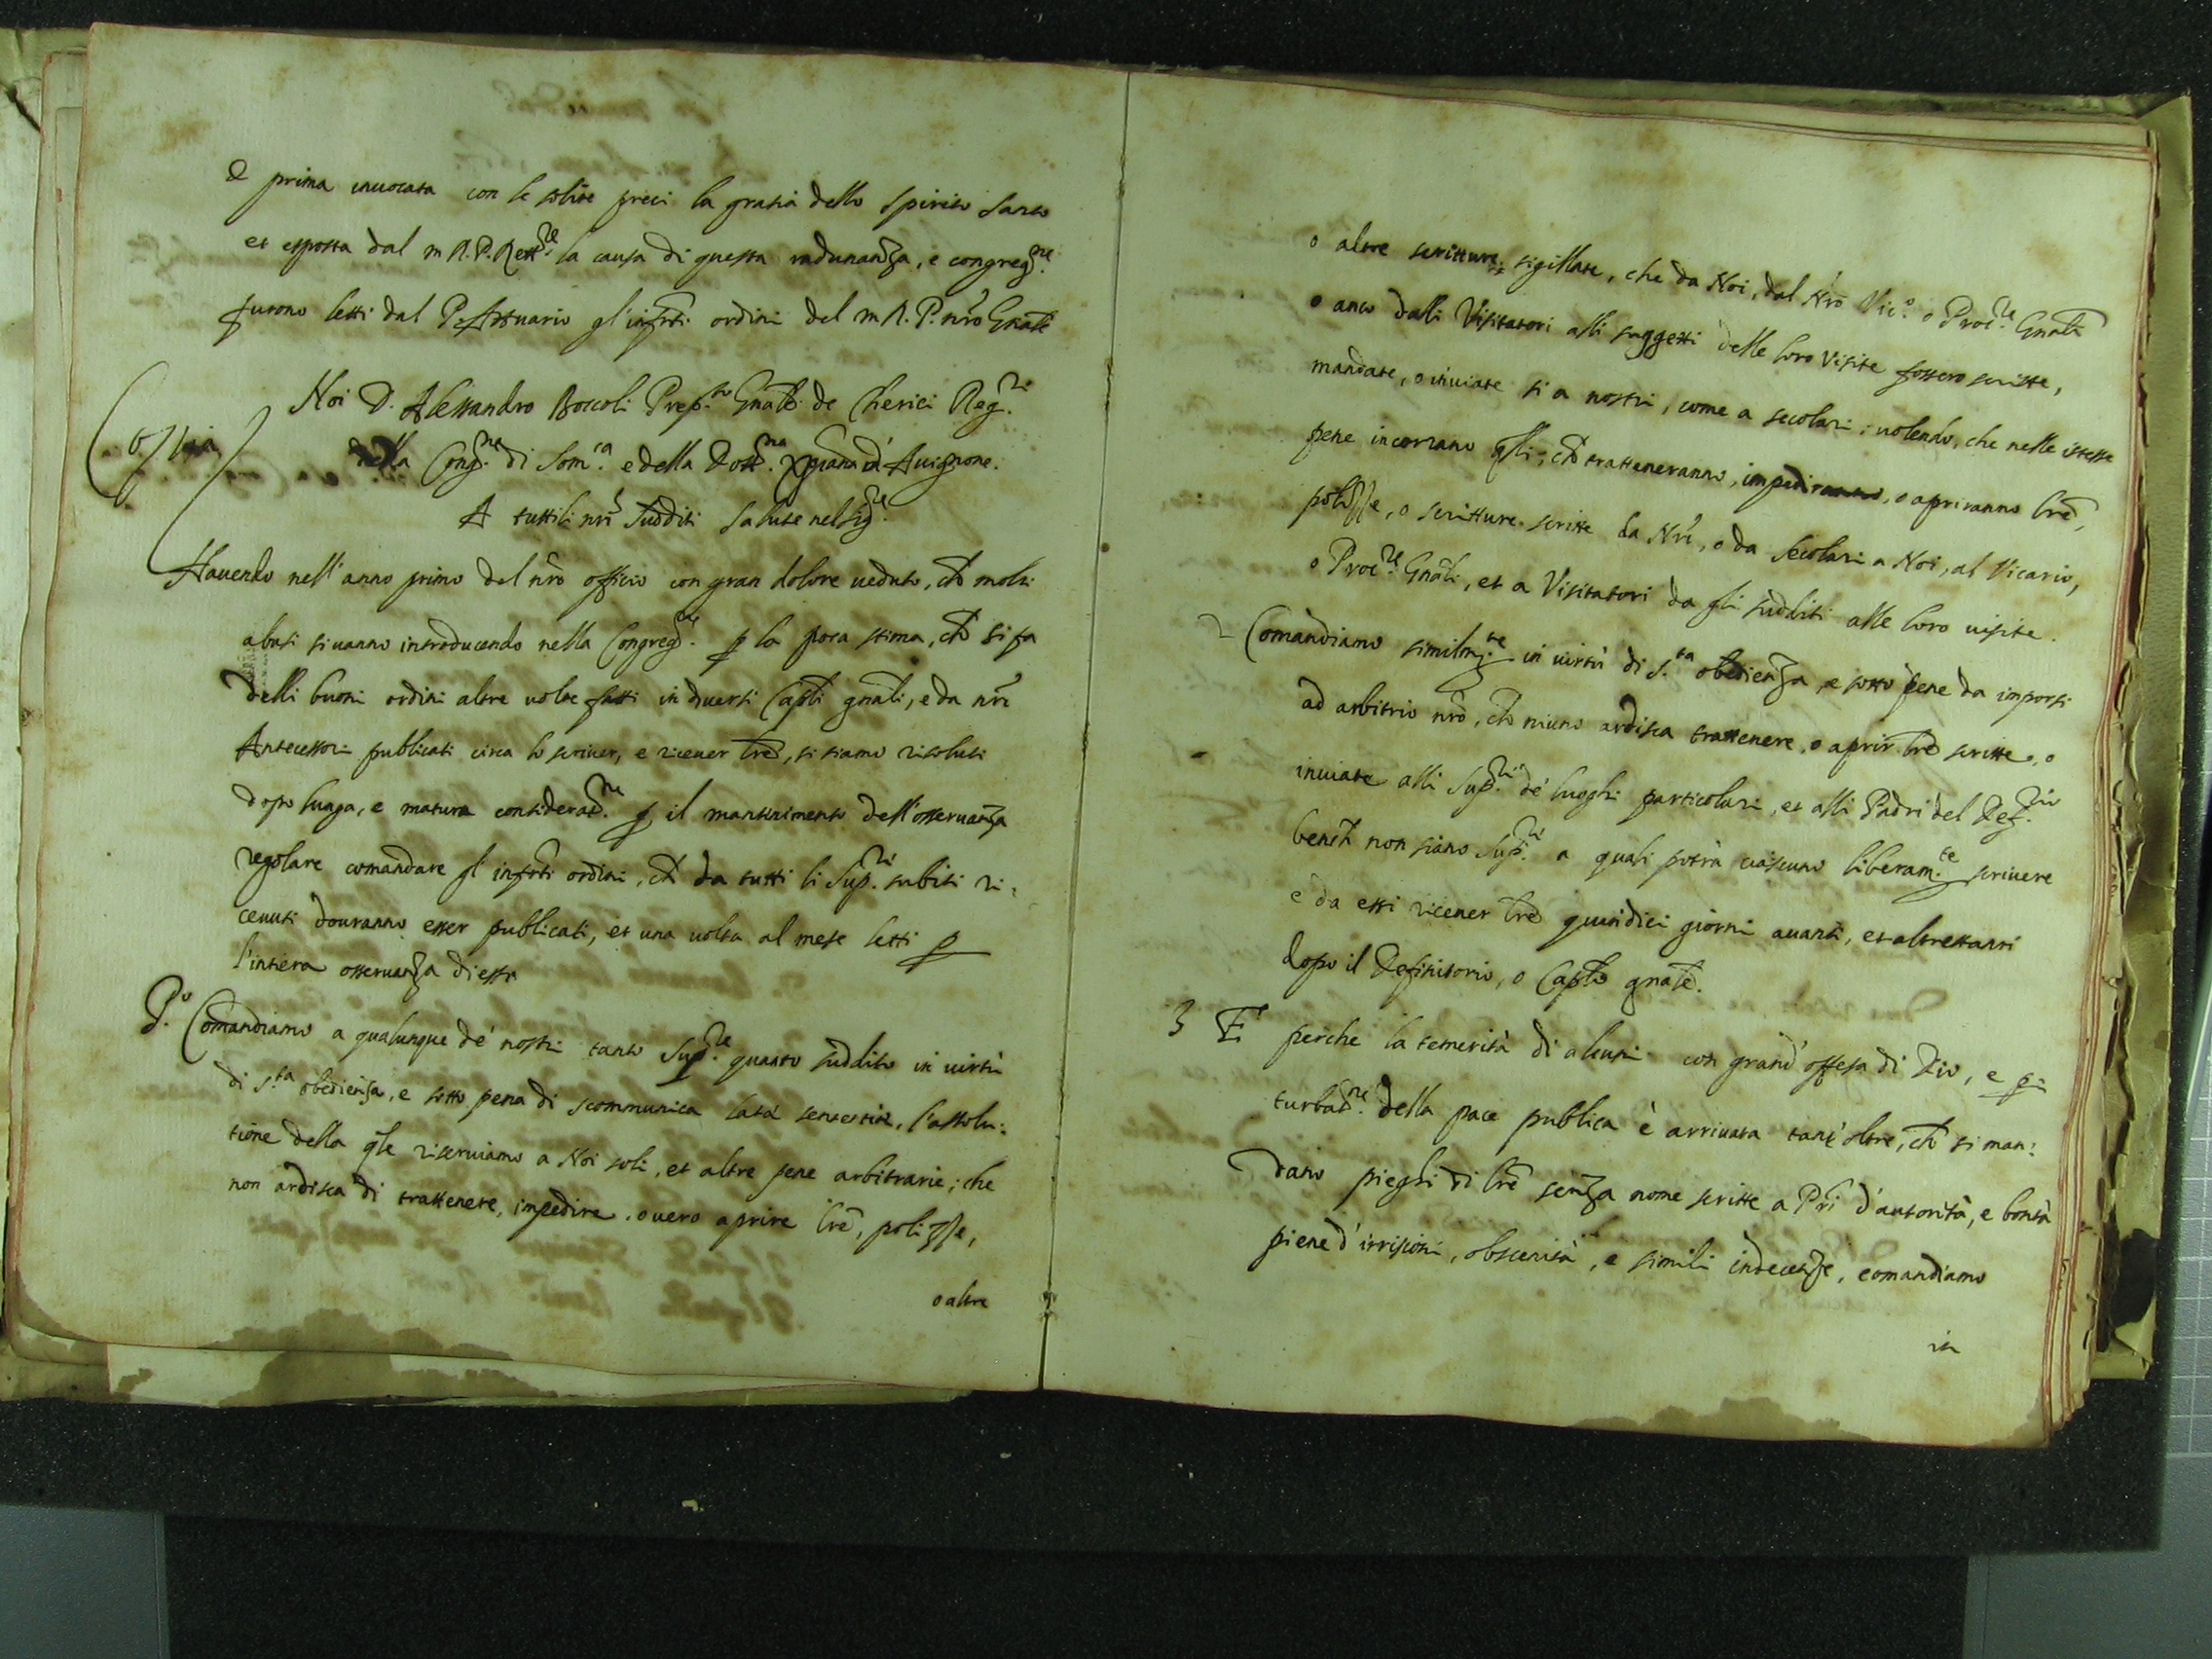 E prima inuocata con le solite preci la gratia dello Spirito Santo
et esposta dal m R. P. Rett.re la causa di questa radunanza, e congreg.ne
furono letti dal P. Attuario gl'infrti ordini del m R. P. nrõ Gnale
Noi D. Alessandro Boccoli Prep.to Gnale de Cherici Reg.ri
della Cong.ne di Som.ca e della Dott.na Xpiana d'Auignone.
A tutti li nri Sudditi salute nel Sig.re
Copia
Hauendo nell'anno primo del nrõ officio con gran dolore ueduto, chè molti
abusi si uanno introducendo nella Congreg.ne p la poca stima, chè si fa
delli buoni ordini altre uolte fatti in diuersi Capli gnali, e da nri
Antecessori publicati circa lo scriuer, e riceuer lrẽ, si siamo risoluti
dopo lunga, e matura considerat.ne p il mantenimento dell'osseruanza
regolare comandare gl'infrti ordini, chè da tutti li Sup.ri subiti ri:
ceuuti douranno esser publicati, et una uolta al mese letti p
l'intiera osseruanza di essi
P.o Comandiamo a qualunque de' nostri tanto Sup.re quanto suddito in uirtù
di s.ta obedienza, e sotto pena di scommunica latæ sententiæ, l'assolu:
tione della qle riseruiamo a Noi soli, et altre pene arbitrarie; che
non ardisca di trattenere, impedire, ouero aprire lrẽ, polizze,
o altre
o altre scritture sigillate, che da Noi, dal Nrõ Vic.o o Proc.re Gnali
o anco dalli Visitatori alli suggetti delle loro Visite fossero scritte,
mandate, o inuiate si a nostri, come a secolari; uolendo, che nelle istesse
pene incorrano qlli, chè tratteneranno, impediranno, o apriranno lrẽ,
polizze, o scritture scritte da Nri, o da Secolari a Noi, al Vicario,
o Proc.re Gnali, et a Visitatori da gli sudditi alle loro uisite.
2 Comandiamo similm.te in uirtù di s.ta obedienza, e sotto pene da imporsi
ad arbitrio nrõ, chè niuno ardisca trattenere, o aprir lrẽ scritte, o
inuiate alli Sup.ri de' luoghi particolari, et alli Padri del Def.rio
benchè non siano Sup.ri a quali potrà ciascuno liberam.te scriuere
e da essi riceuer lrẽ quindici giorni auanti, et altrettanti
dopo il Definitorio, o Caplo gnale.
3 E perche la temerità di alcuni con grand'offesa di Dio, e p:
turbat.ne della pace publica è arriuata tant'oltre, chè si man:
dano pieghi di lrẽ senza nome scritte a Pri d'autorità, e bontà
piene d'irrisioni, obscenità, e simili indecenze, comandiamo
in